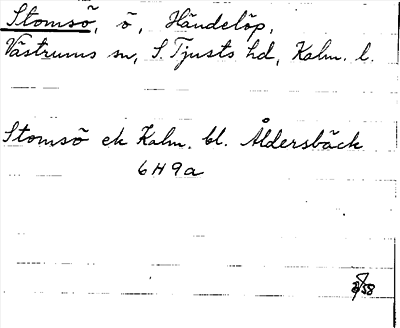 Stomsö, ö, Händelöp,
Västrums sn, S. Tjusts hd, Kalm. l.
Stomsö ek Kalm. bl. Åldersbäck
6H9a
58